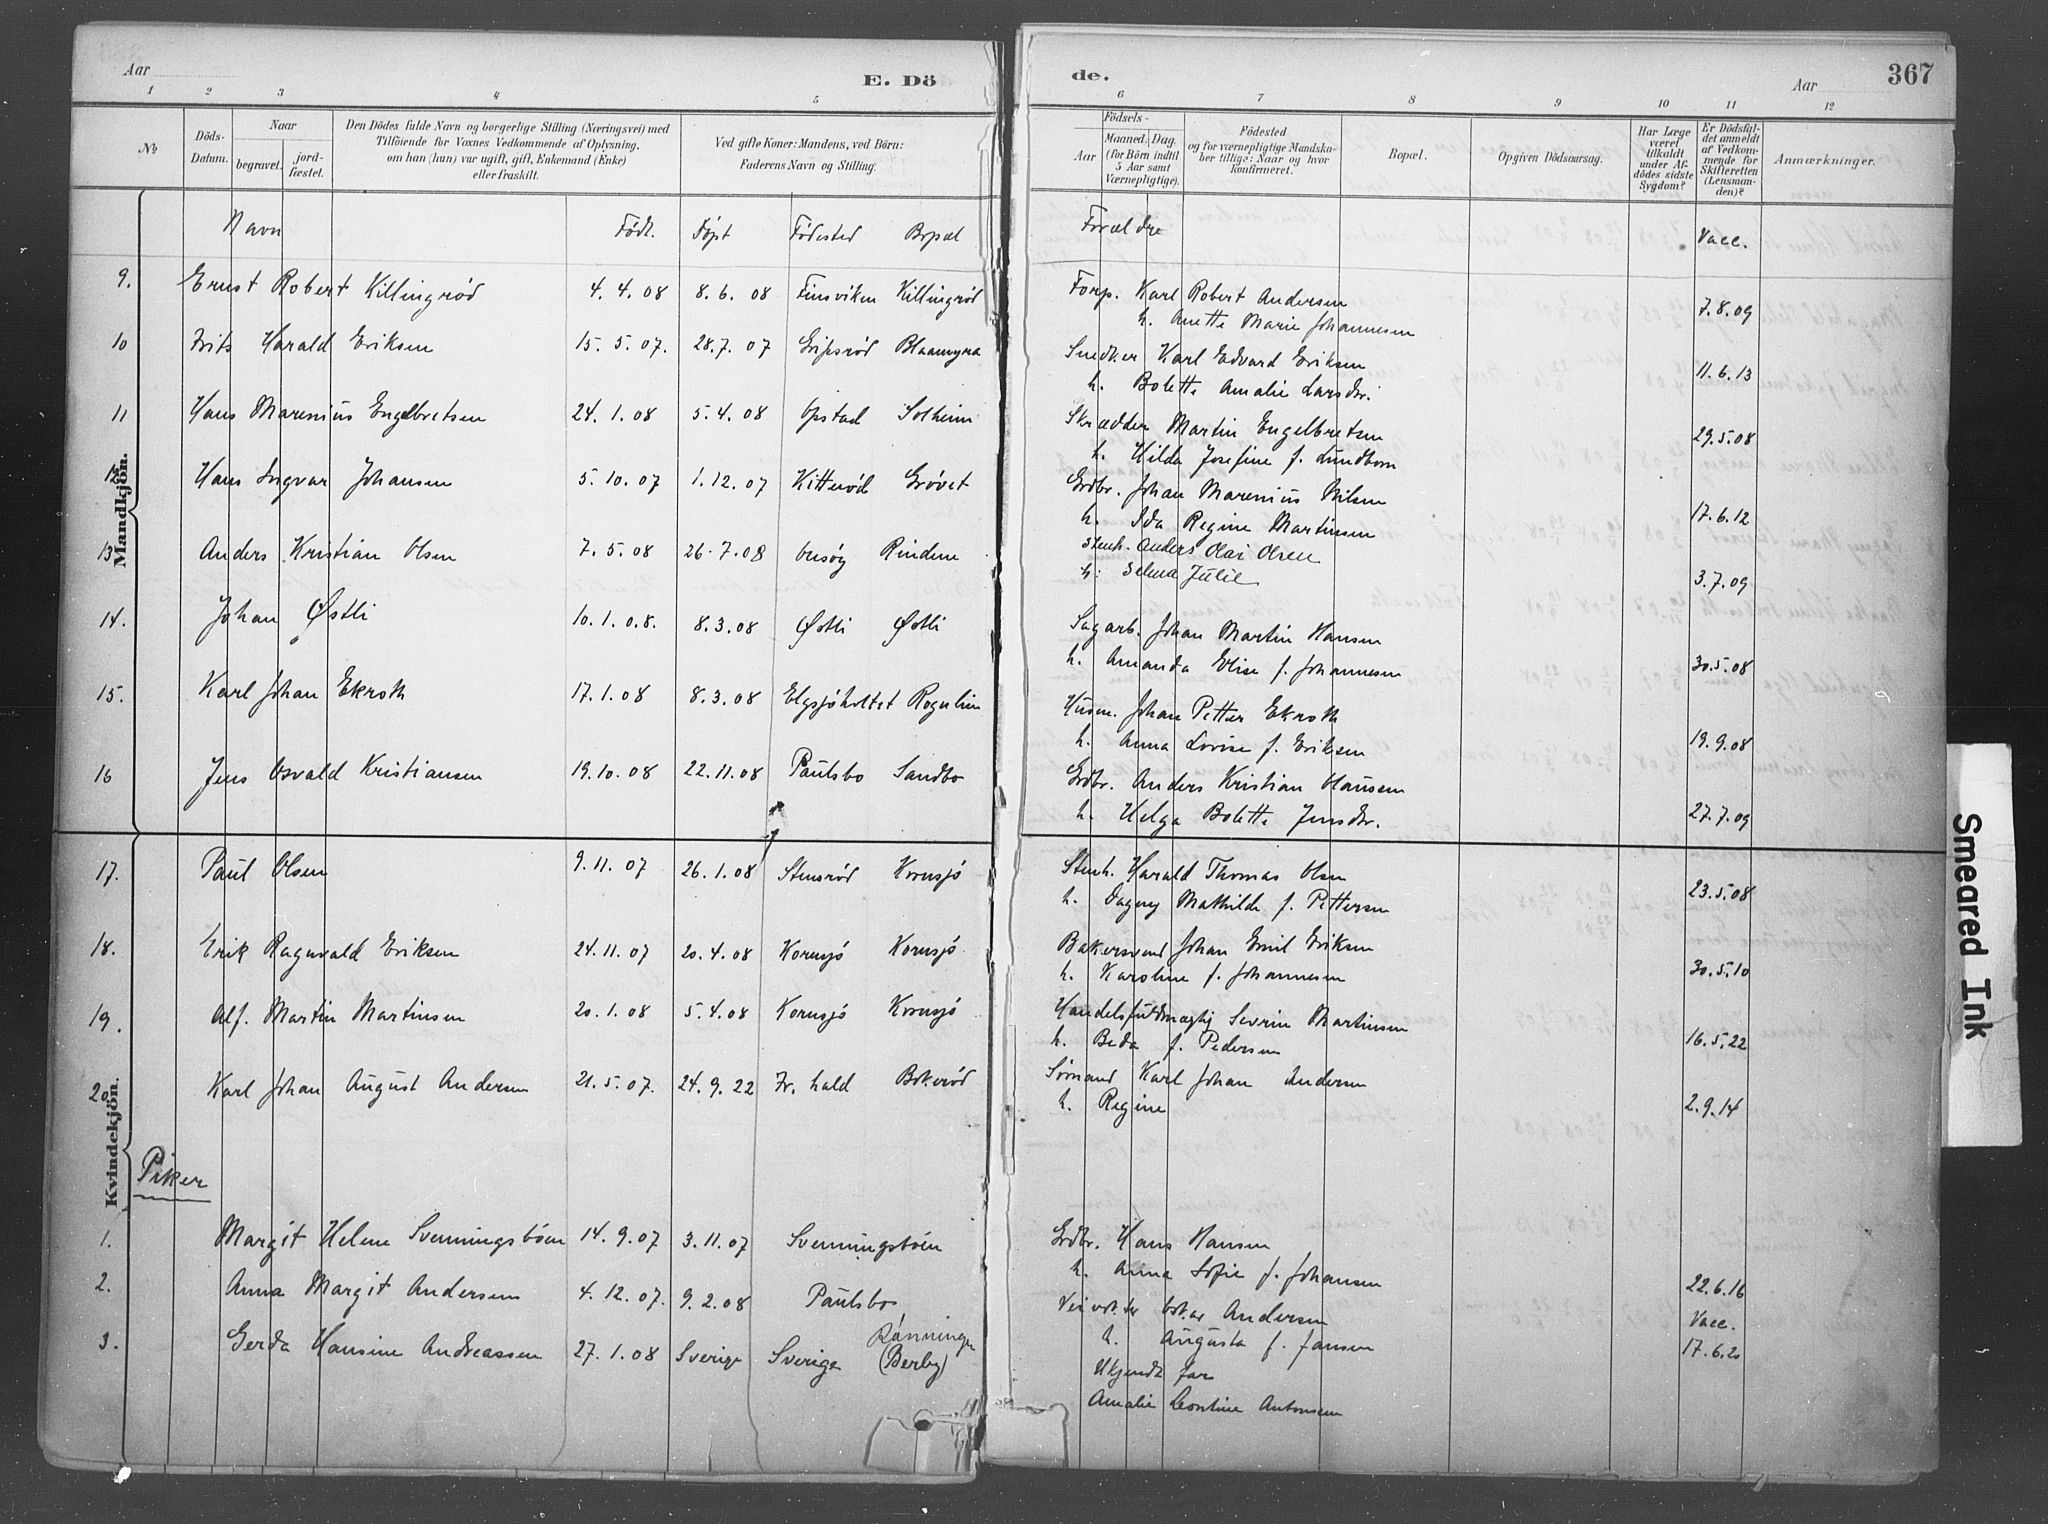 Aar
E. Dö
de.
Aar
367
1 2 3 4 5 6 7 8 9 10 11 12
№
Döds-Datum.
Naar
begravet.
jord-fæstet.
Den Dödes fulde Navn og borgerlige Stilling (Næringsvei) med
Tilföiende for Voxnes Vedkommende af Oplysning.
om han (hun) var ugift, gift, Enkemand (Enke)
eller fraskilt.
Ved gifte Koner: Mandens, ved Börn:
Faderens Navn og Stilling.
Födsels-
Aar
Maaned. Dag.
(for Börn indtil
5 Aar samt
Værnepligtige).
Födested
og for værnepligtige Mandska-
ber tillige: Naar og hvor
konfirmeret.
Bopæl.
Opgiven Dödsaarsag.
Har Læge
været
tilkaldt
under Af-
dödes sidste
Sygdom?
Er Dödsfal-
det anmeldt
af Vedkom-
mende for
Skifteretten
(Lensman-
den)?
Anmærkninger.
Navn Født. Døpt Fødested Bopæl Forældre Vacc.
Mandkjön.
9. Ernst Robert Killingrød 4.4.08 8.6.08 Finsviken Killingrød Forp. Karl Robert Andersen
h. Anette Marie Johannesen 7.8.09
10 Frits Harald Eriksen 15.5.07. 28.7.07 Gripsrød Blaamyra Snedker Karl Edvard Eriksen
h. Bolette Amalie Larsdtr. 11.6.13
11 Hans Marenius Engelbretsen 24.1.08 5.4.08 Opstad Solheim Skrædder Martin Engelbretsen
h. Hilda Josefine f. Lundborn 29.5.08
12. Hans Ingvar Johansen 5.10.07 1.12.07 Kitterød Grøvet Grdbr. Johan Marenius Nilsen
h. Ida Regine Martinsen 17.6.12
13 Anders Kristian Olsen 7.5.08 26.7.08 Rindene Stenh. Anders Olai Olsen
h: Selma Julie 3.7.09
14. Johan Østli 10.1.0.8. 8.3.08 Østli Østli Sagarb. Johan Martin Hansen
h. Amanda Elise f. Johannesen 30.5.08
15. Karl Johan Ekroth 17.1.08 8.3.08 Elgsjøholtet Husm. Johan Petter Ekroth
h. Anna Lovise f. Eriksen 19.9.08
16 Jens Osvald Kristiansen 19.10.08 22.11.08 Paulsbo Sandbo Grdbr. Anders Kristian Hansen
h. Helga Bolette Jensdtr. 27.7.09
Kvindekjön.
17. Paul Olsen 9.11.07 26.1.08 Stensrød Kornsjø Stenh. Harald Thomas Olsen
h. Dagny Mathilde f. Pettersen 23.5.08
18. Erik Ragnvald Eriksen 24.11.07 20.4.08 Kornsjø Kornsjø. Bakersvend Johan Emil Eriksen
h. Karoline f. Johannesen 30.5.10
19. Alf. Martin Martinsen 20.1.08 5.4.08 Kornsjø Kornsjø Handelsfuldmægtig Severin Martinsen
h. Beda f. Pedersen 16.5.22
20. Karl Johan August Andersen 21.5.07. 24.9.22 Fr. hald Bokerød Sømand Karl Johan Andersen
h. Regine 2.9.14
Piker
1. Margit Helene Svenningsbøen 14.9.07 3.11.07 Svenningsbøen Grdbr. Hans Hansen
h. Anna Sofie f. Johansen 22.6.16
2. Anna Margit Andersen 4.12.07. 9.2.08 Paulsbo Veivokter Oskar Andersen Vacc.
h. Augusta f. Jansen 17.6.20
3. Gerda Hansine Andreassen 27.1.08 Sverige Sverige Rønningen (Berby) Ukjendt far
Amalie Leontine Antonsen
Smeared Ink